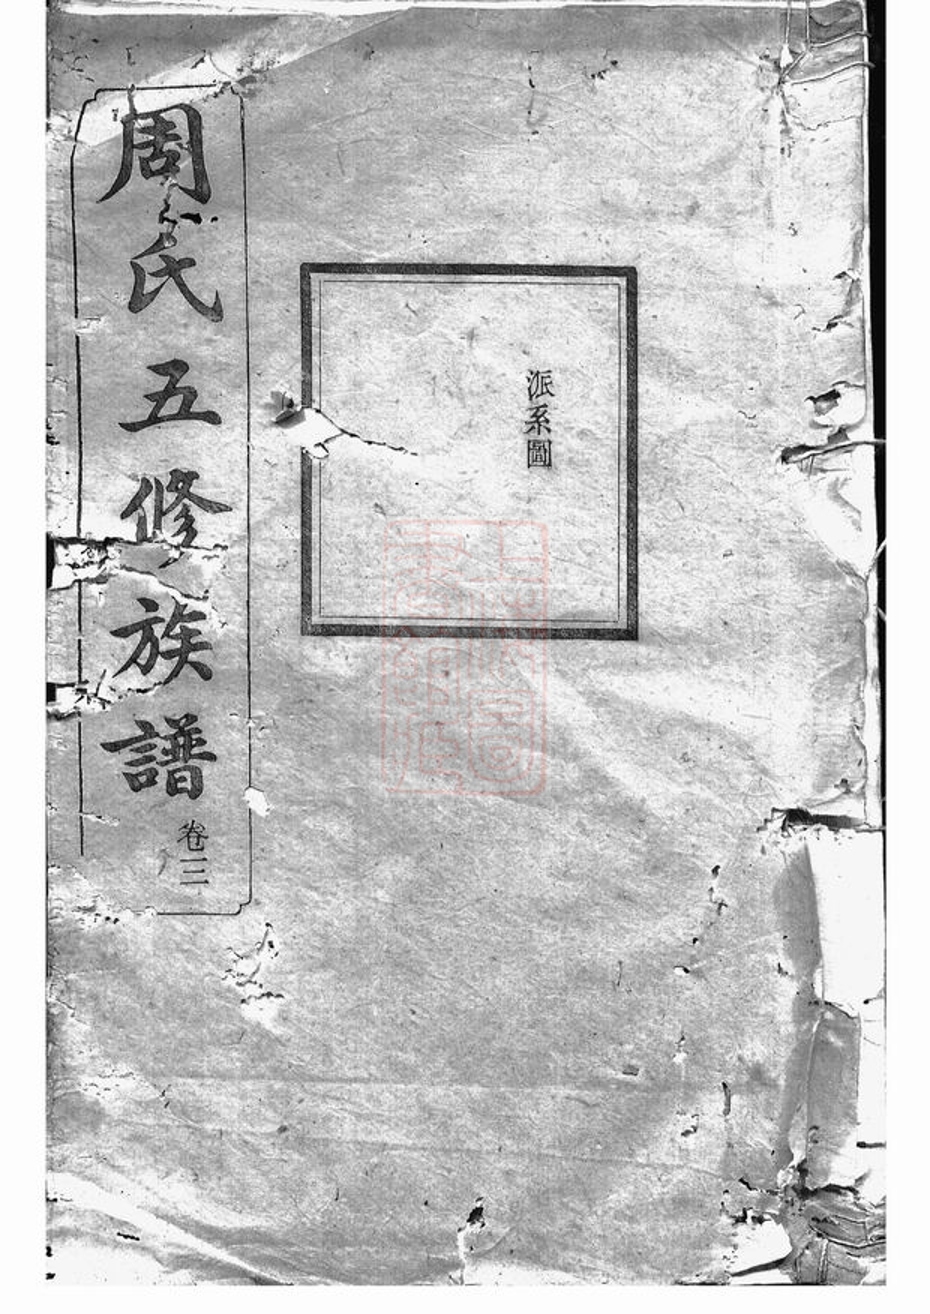 周氏五修族譜
卷三
派系圖